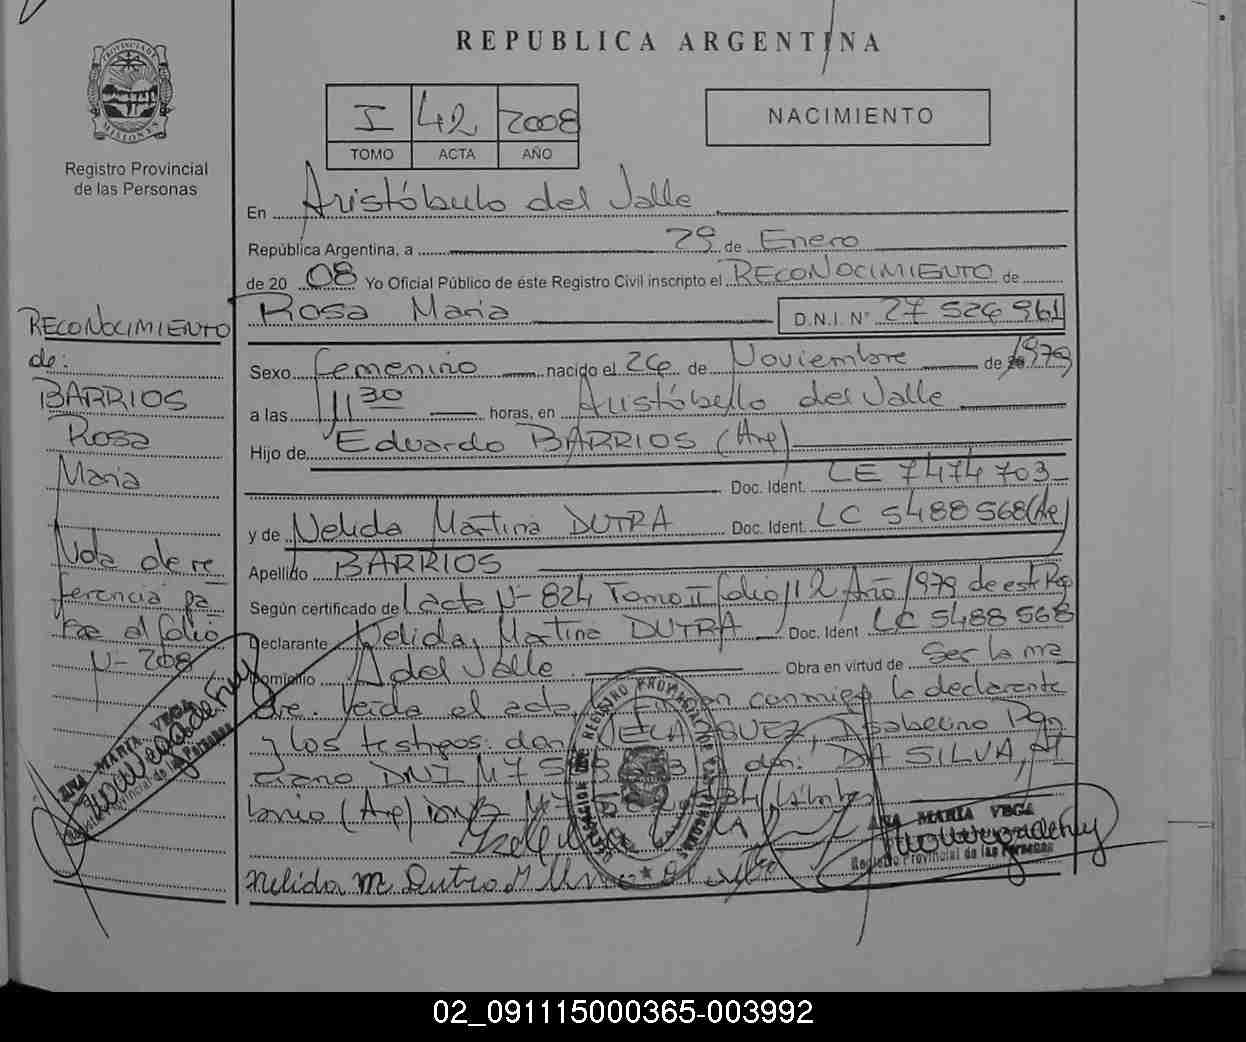 REPUBLICA ARGENTINA
PROVINCIA DE
MISIONES
Registro Provincial
de las Personas
I 42 2008
TOMO ACTA AÑO
NACIMIENTO
En Aristóbulo del Valle
República Argentina, a 29 de Enero
de 2008 Yo Oficial Público de éste Registro Civil inscripto el RECONOCIMIENTO de
Rosa Maria D.N.I. N° 27 526 961
Sexo femenino nacido el 24 de Noviembre de 1979
a las 11 30 horas, en Aristóbello del Valle
Hijo de Eduardo BARRIOS (Arg)
Doc. Ident. LE 7474 703
y de Nelida Martina DUTRA Doc. Ident. LC 5488568 (Arg)
Apellido BARRIOS
Según certificado de Lacta Nº 824 Tomo II folio 112 Año 1979 de est Reg
Declarante Nelida, Martina DUTRA Doc. Ident LC 5488 568
Domicilio A del Valle Obra en virtud de Ser la ma
dre. leída el acta, firman conmigo la declarante
y los testigos: don Isabelino
ciano DNI M 7 don: DA SILVA,
tonio (Arg)
Nelida M. Dutra
ANA MARIA VEGA
Registro Provincial de las Personas
RECONOCIMIENTO
de:
BARRIOS
Rosa
Maria
Nota de re
ferencia pa
se al folio
Nº 208
ANA MARIA VEGA
Provincial de las Personas
02_091115000365-003992